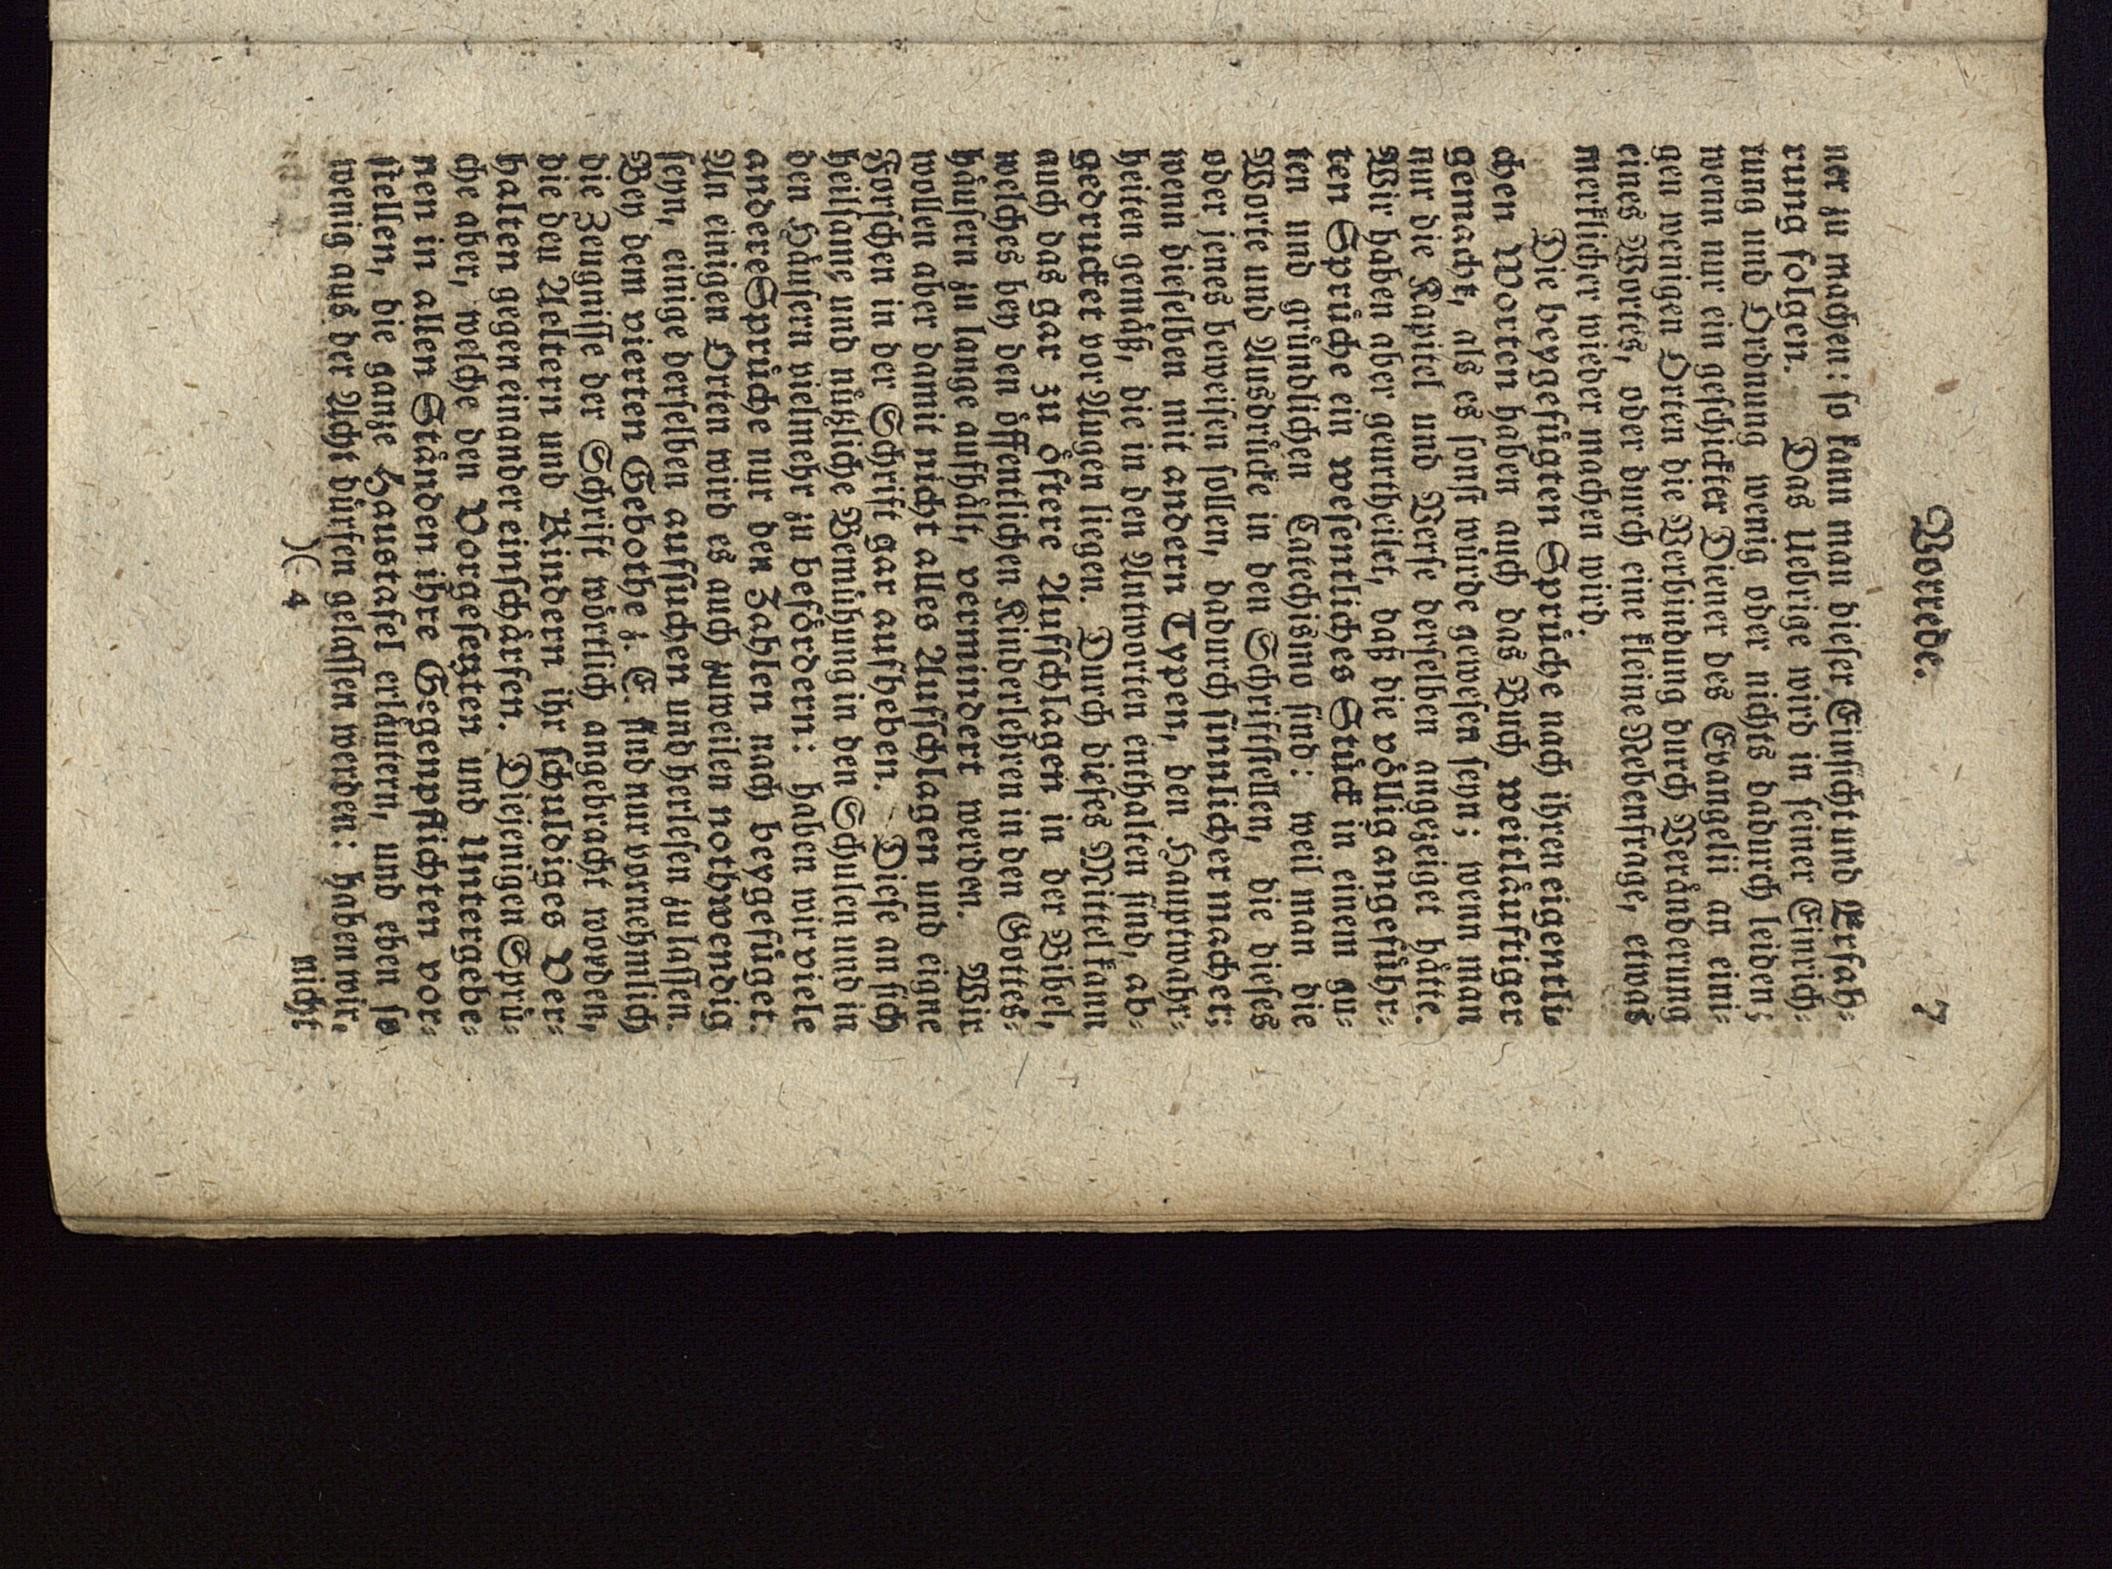 Vorrede. 7
ner zu machen: so kann man dieser Einsicht und Erfah-
rung folgen. Das Uebrige wird in seiner Einrich-
tung und Ordnung wenig oder nichts dadurch leiden;
wenn nur ein geschickter Diener des Evangelii an eini-
gen wenigen Orten die Verbindung durch Veränderung
eines Wortes, oder durch eine kleine Nebenfrage, etwas
merklicher wieder machen wird.
Die beygefügten Sprüche nach ihren eigentli-
chen Worten haben auch das Buch weitläuftiger
gemacht, als es sonst würde gewesen seyn; wenn man
nur die Kapitel und Verse derselben angezeiget hätte.
Wir haben aber geurtheilet, daß die völlig angeführ-
ten Sprüche ein wesentliches Stück in einem gu-
ten und gründlichen Catechismo sind: weil man die
Worte und Ausdrücke in den Schriftstellen, die dieses
oder jenes beweisen sollen, dadurch sinnlicher machet;
wenn dieselben mit andern Typen, den Hauptwahr-
heiten gemäß, die in den Antworten enthalten sind, ab-
gedrucket vor Augen liegen. Durch dieses Mittel kann
auch das gar zu öftere Aufschlagen in der Bibel,
welches bey den öffentlichen Kinderlehren in den Gottes-
häusern zu lange aufhält, vermindert werden. Wir
wollen aber damit nicht alles Aufschlagen und eigne
Forschen in der Schrift gar aufheben. Diese an sich
heilsame und nützliche Bemühung in den Schulen und in
den Häusern vielmehr zu befördern: haben wir viele
andere Sprüche nur den Zahlen nach beygefüget.
An einigen Orten wird es auch zuweilen nothwendig
seyn, einige derselben aufsuchen und herlesen zu lassen.
Bey dem vierten Gebothe z. E. sind nur vornehmlich
die Zeugnisse der Schrift wörtlich angebracht worden,
die den Aeltern und Kindern ihr schuldiges Ver-
halten gegen einander einschärfen. Diejenigen Sprü-
che aber, welche den Vorgesetzten und Untergebe-
nen in allen Ständen ihre Gegenpflichten vor-
stellen, die ganze Haustafel erläutern, und eben so
wenig aus der Acht dürfen gelassen werden: haben wir,
)( 4 nicht